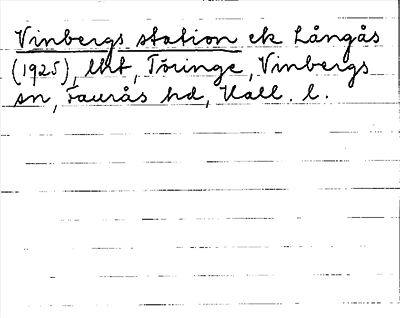 Vinbergs station ek Långås
(1925), lht, Töringe, Vinbergs
sn, Faurås hd, Hall. l.